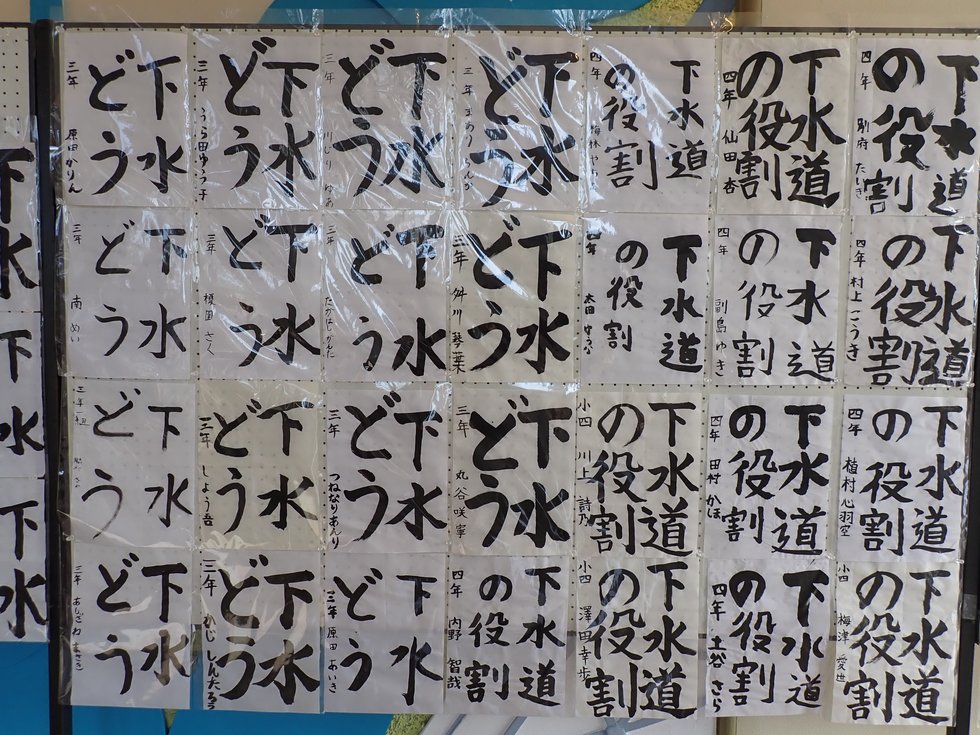 下水道
の役割
四年 別府
下水道
の役割
四年 仙田 杏
下水道
の役割
四年
下水
どう
三年
下水
どう
三年
下水
どう
三年
下水
どう
三年 原田 かりん
下水道
の役割
四年 村上 こうき
下水道
の役割
四年 副島 ゆき
下水道
の役割
四年 太田
下水
どう
三年 舛川 琴葉
下水
どう
三年
下水
どう
三年 さく
下水
どう
三年 南 めい
下水道
の役割
四年 植村 心羽空
下水道
の役割
四年 田村 かほ
下水道
の役割
小四 川上 詩乃
下水
どう
三年 丸谷 咲寧
下水
どう
三年 つねなりあんり
下水
どう
三年
下水
どう
下水道
の役割
小四 梅津 愛世
下水道
の役割
四年 土谷 さら
下水道
の役割
小四 澤田 幸歩
下水道
の役割
四年 内野 智哉
下水
どう
三年 原田 あいき
下水
どう
三年 しんたろう
下水
どう
三年
下水
下水
下水